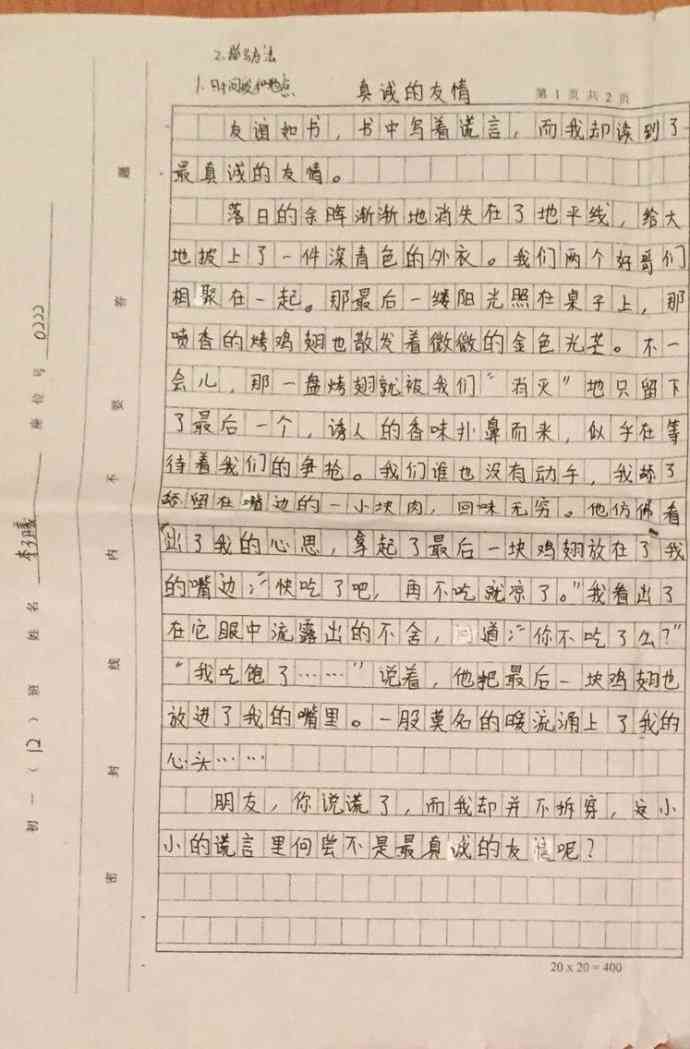 2.描写方法
1.时间段和地点
真诚的友情
第 1 页 共 2 页
友谊如书，书中写着谎言，而我却读到了
最真诚的友情。
落日的余晖渐渐地消失在了地平线，给大
地披上了一件深青色的外衣。我们两个好哥们
相聚在一起。那最后一缕阳光照在桌子上，那
喷香的烤鸡翅也散发着微微的金色光芒。不一
会儿，那一盘烤翅就被我们“消灭”地只留下
了最后一个，诱人的香味扑鼻而来，似乎在等
待着我们的争抢。我们谁也没有动手，我舔了
舔留在嘴边的一小块肉，回味无穷。他仿佛看
出了我的心思，拿起了最后一块鸡翅放在了我
的嘴边：“快吃了吧，再不吃就凉了。”我看出了
在它眼中流露出的不舍，问道：“你不吃了么？”
“我吃饱了……”说着，他把最后一块鸡翅也
放进了我的嘴里。一股莫名的暖流涌上了我的
心头……
朋友，你说谎了，而我却并不拆穿，这小
小的谎言里何尝不是最真诚的友情呢？
20 x 20 = 400
初一（12）班 姓名 座位号 0222
密 封 线 内 不 要 答 题